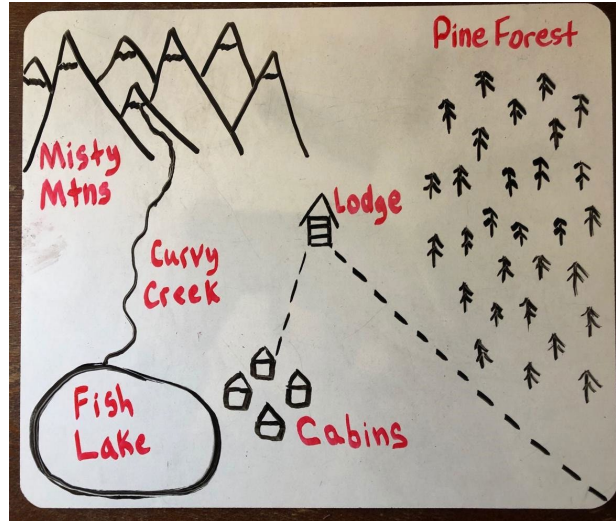 Pine Forest
Misty
Mtns
Lodge
Curvy
Creek
Fish
Lake
Cabins